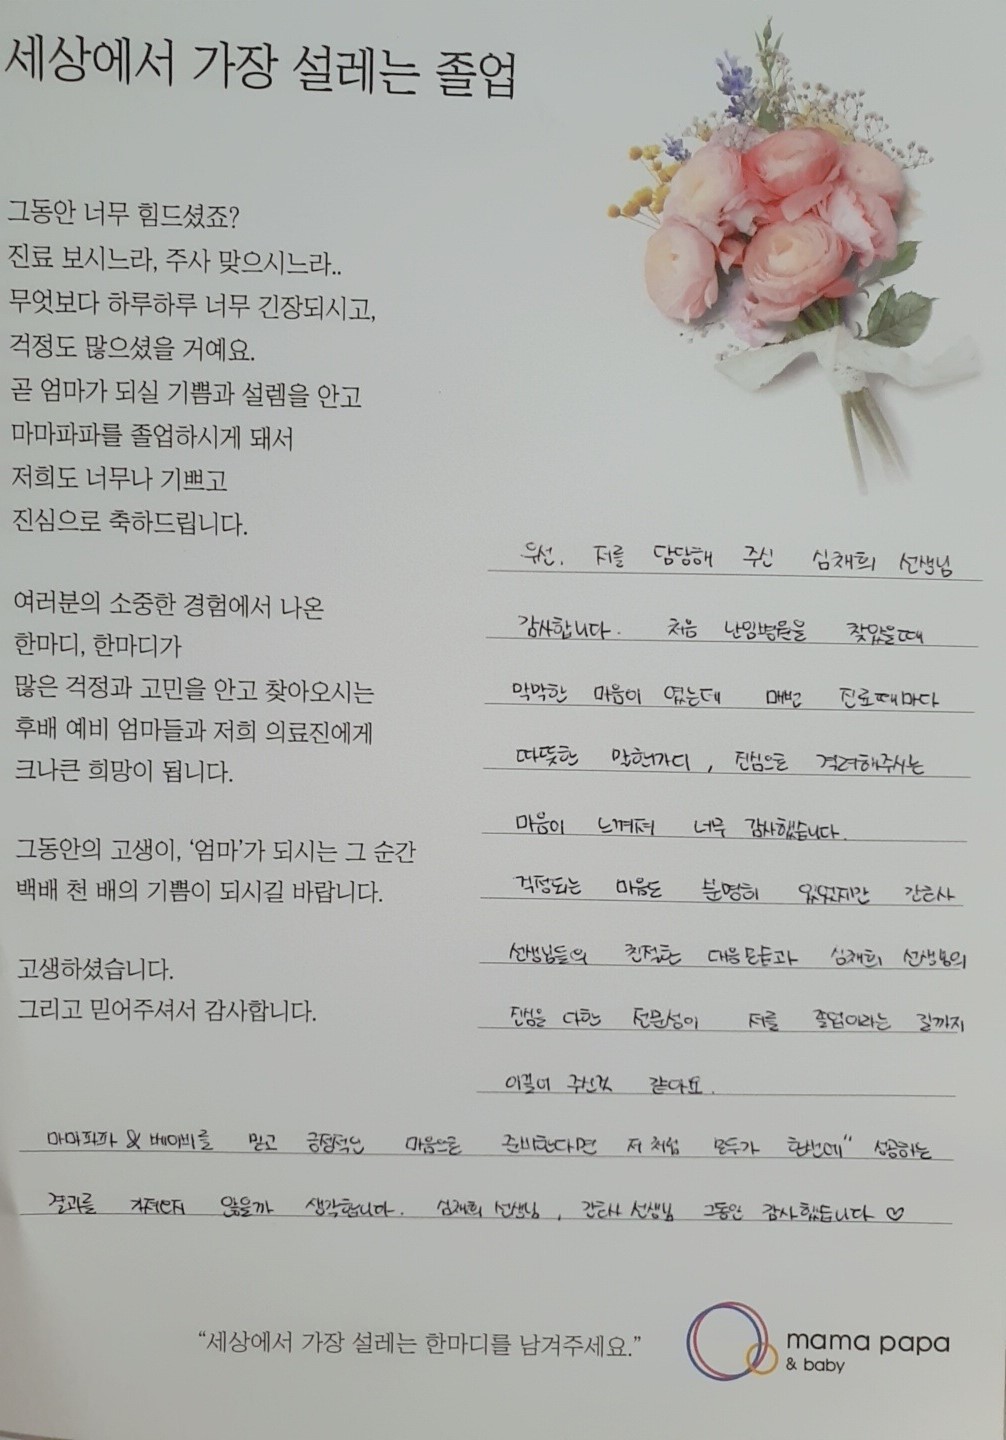 세상에서 가장 설레는 졸업
그동안 너무 힘드셨죠?
진료 보시느라, 주사 맞으시느라..
무엇보다 하루하루 너무 긴장되시고,
걱정도 많으셨을 거예요.
곧 엄마가 되실 기쁨과 설렘을 안고
마마파파를 졸업하시게 돼서
저희도 너무나 기쁘고
진심으로 축하드립니다.
여러분의 소중한 경험에서 나온
한마디, 한마디가
많은 걱정과 고민을 안고 찾아오시는
후배 예비 엄마들과 저희 의료진에게
크나큰 희망이 됩니다.
그동안의 고생이, ‘엄마’가 되시는 그 순간
백배 천 배의 기쁨이 되시길 바랍니다.
고생하셨습니다.
그리고 믿어주셔서 감사합니다.
우선, 저를 담당해 주신 심재희 선생님
감사합니다. 처음 난임병원을 찾았을때
막막한 마음이 였는데 매번 진료때마다
따뜻한 말한마디, 진심으로 격려해주시는
마음이 느껴져 너무 감사했습니다.
걱정되는 마음도 분명히 있었지만 간호사
선생님들의 친절한 대응 과 심재희 선생님의
진심을 다한 전문성이 저를 졸업이라는 길까지
이끌어 주신것 같아요.
마마파파 & 베이비를 믿고 긍정적인 마음으로 준비한다면 저처럼 모두가 한번에" 성공하는
결과를 않을까 생각합니다. 심재희 선생님, 간호사 선생님 그동안 감사했습니다 ♡
“세상에서 가장 설레는 한마디를 남겨주세요.”
mama papa
& baby